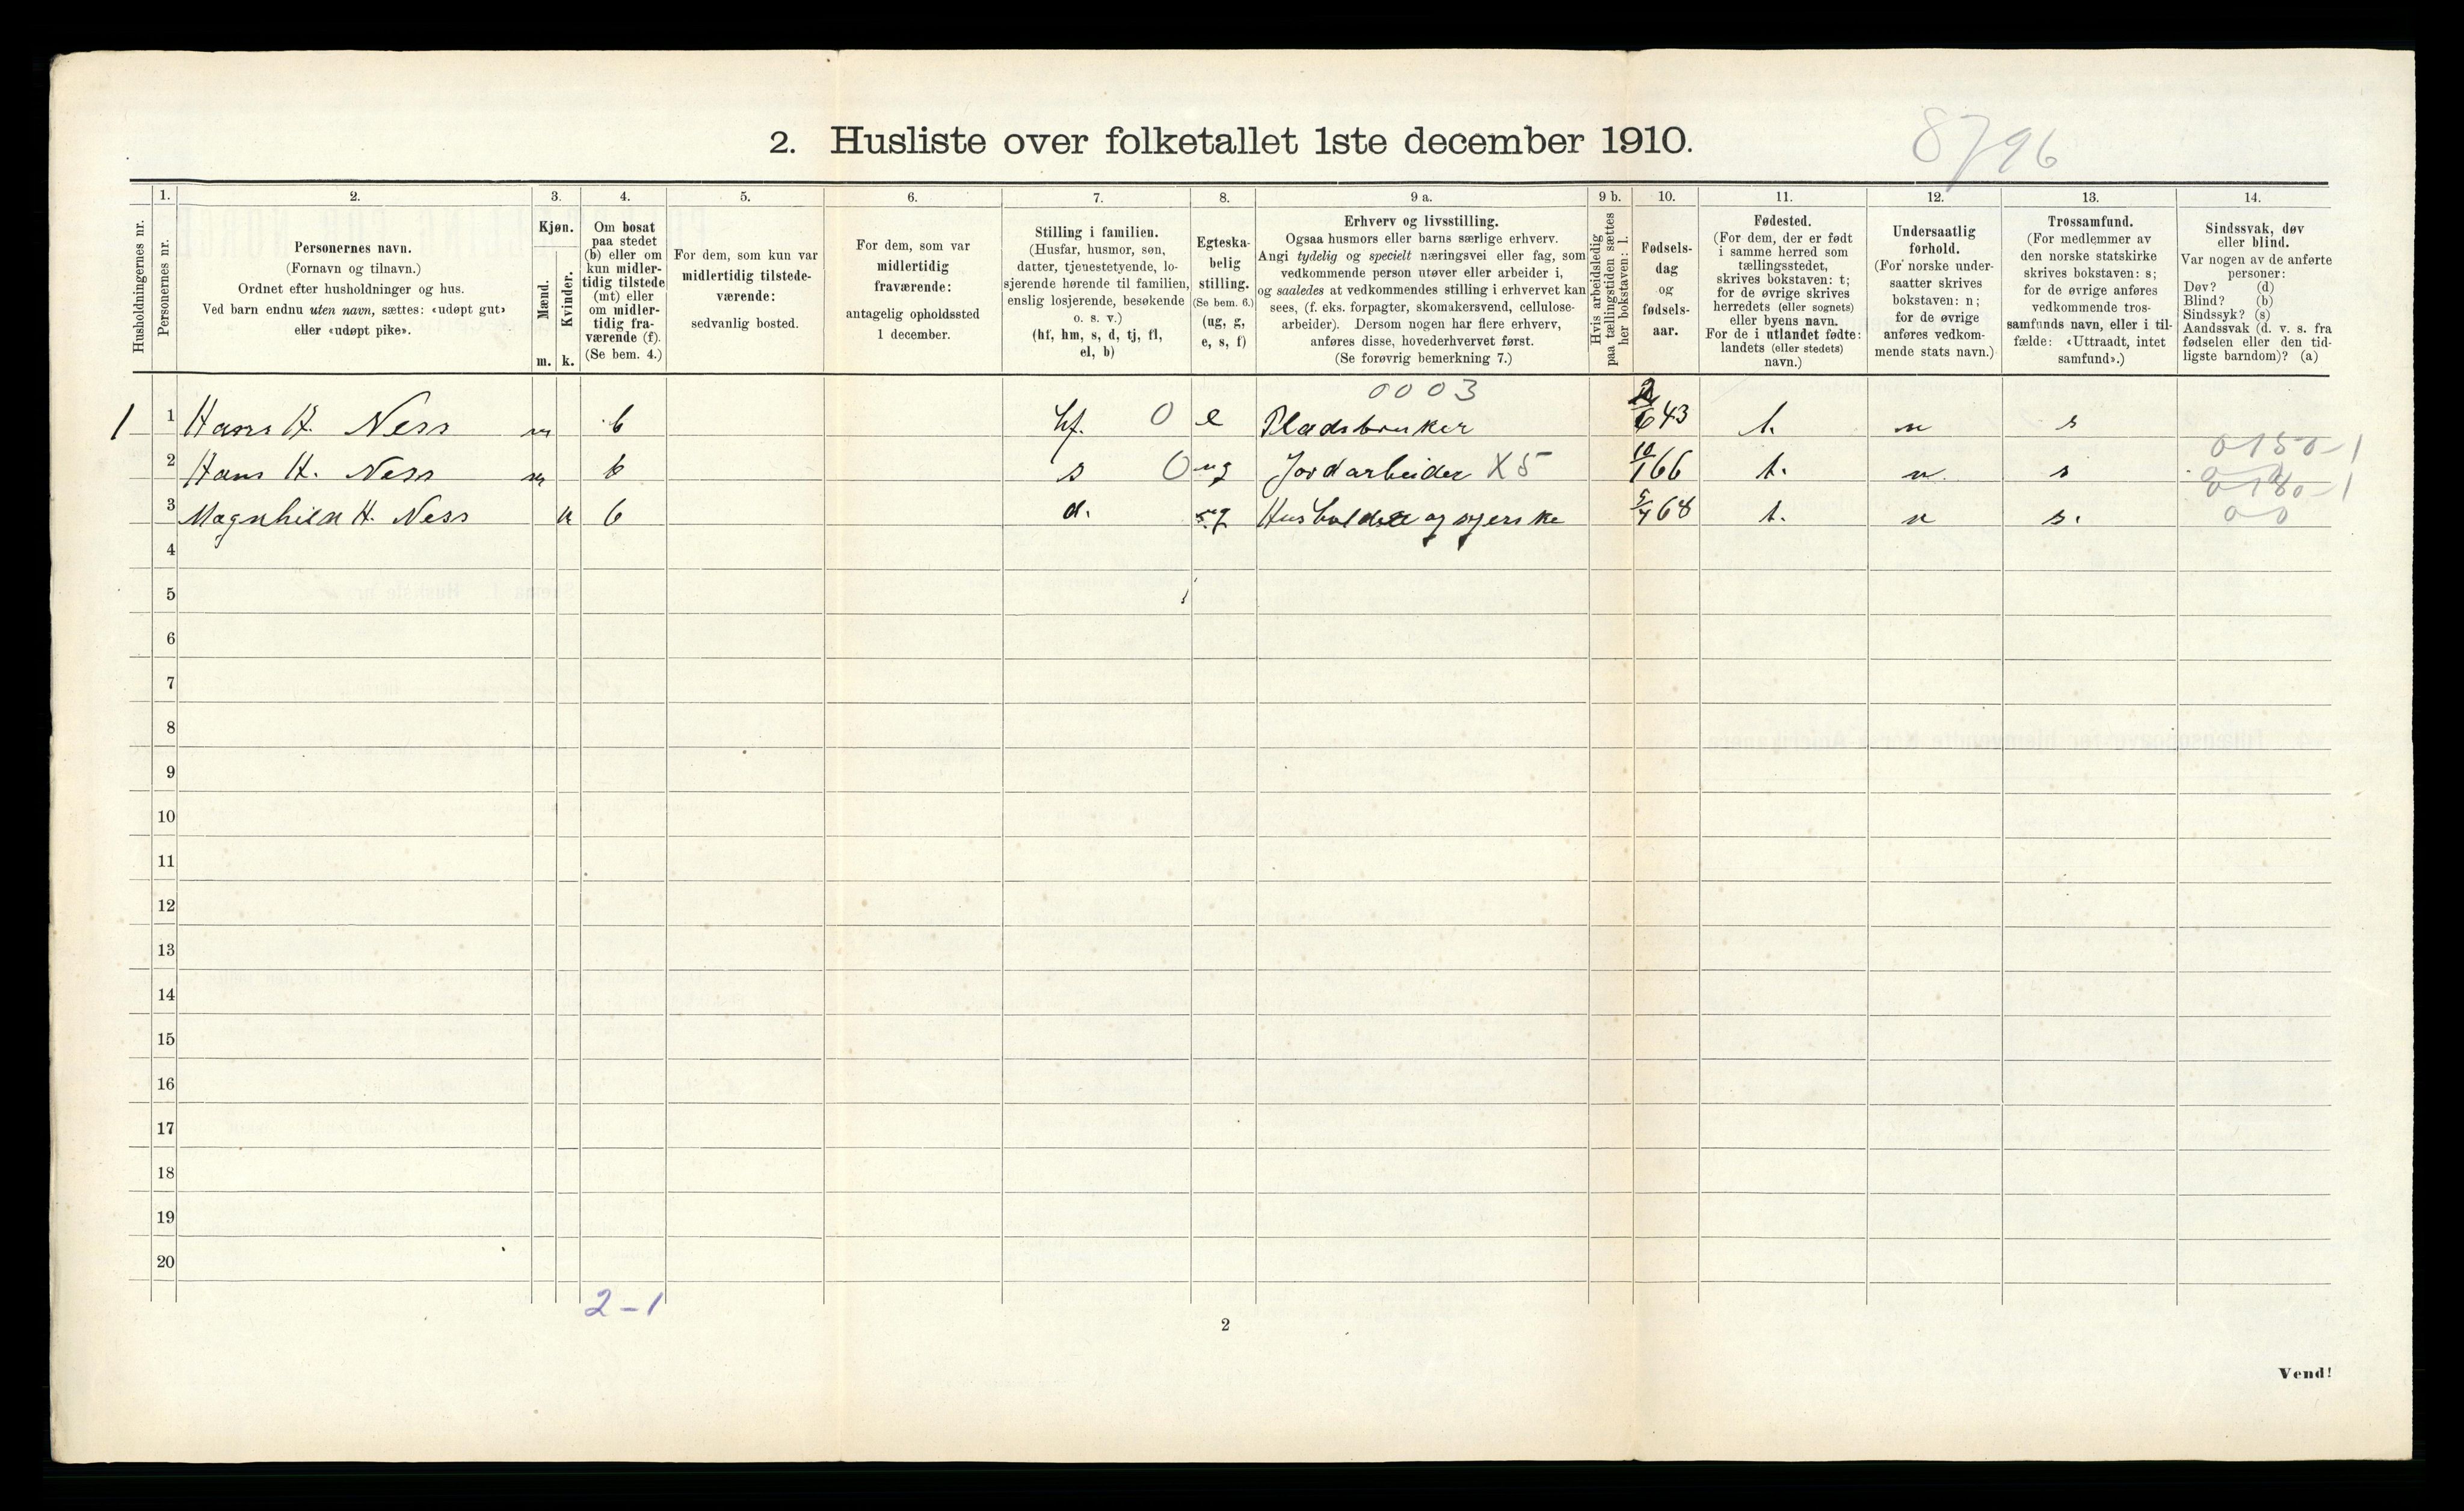 2. Husliste over folketallet 1ste december 1910.
8796
Husholdningernes nr.
1.
Personernes nr.
2.
Personernes navn.
(Fornavn og tilnavn.)
Ordnet efter husholdninger og hus.
Ved barn endnu uten navn, sættes: «udøpt gut»
eller «udøpt pike».
3.
Kjøn.
Mænd.
Kvinder.
m. k.
4.
Om bosat
paa stedet
(b) eller om
kun midler-
tidig tilstede
(mt) eller
om midler-
tidig fra-
værende (f).
(Se bem. 4.)
5.
For dem, som kun var
midlertidig tilstede-
værende:
sedvanlig bosted.
6.
For dem, som var
midlertidig
fraværende:
antagelig opholdssted
1 december.
7.
Stilling i familien.
(Husfar, husmor, søn,
datter, tjenestetyende, lo-
sjerende hørende til familien,
enslig losjerende, besøkende
o. s. v.)
(hf, hm, s, d, tj, fl,
el, b)
8.
Egteska-
belig
stilling.
(Se bem. 6.)
(ug, g,
e, s, f)
9 a.
Erhverv og livsstilling.
Ogsaa husmors eller barns særlige erhverv.
Angi tydelig og specielt næringsvei eller fag, som
vedkommende person utøver eller arbeider i,
og saaledes at vedkommendes stilling i erhvervet kan
sees, (f. eks. forpagter, skomakersvend, cellulose-
arbeider). Dersom nogen har flere erhverv,
anføres disse, hovederhvervet først.
(Se forøvrig bemerkning 7.)
9 b.
Hvis arbeidsledig
paa tællingstiden sættes
her bokstaven: l.
10.
Fødsels-
dag
og
fødsels-
aar.
11.
Fødested.
(For dem, der er født
i samme herred som
tællingsstedet,
skrives bokstaven: t;
for de øvrige skrives
herredets (eller sognets)
eller byens navn.
For de i utlandet fødte:
landets (eller stedets)
navn.)
12.
Undersaatlig
forhold.
(For norske under-
saatter skrives
bokstaven: n;
for de øvrige
anføres vedkom-
mende stats navn.)
13.
Trossamfund.
(For medlemmer av
den norske statskirke
skrives bokstaven: s;
for de øvrige anføres
vedkommende tros-
samfunds navn, eller i til-
fælde: «Uttraadt, intet
samfund».)
14.
Sindssvak, døv
eller blind.
Var nogen av de anførte
personer:
Døv? (d)
Blind? (b)
Sindssyk? (s)
Aandssvak (d. v. s. fra
fødselen eller den tid-
ligste barndom)? (a)
0003
1 1 Hans H. Ness m b hf. 0 e Pladsbruker 2/6 43 t. n s
0150-1
2 Hans H. Ness m b s 0 ug Jordarbeider X5 10/1 66 t. n. s
3 Magnhild H. Ness k b d. ug og syerske 5/4 68 t. n s. 00
4
5
6
7
8
9
10
11
12
13
14
15
16
17
18
19
20
2-1
2
Vend!